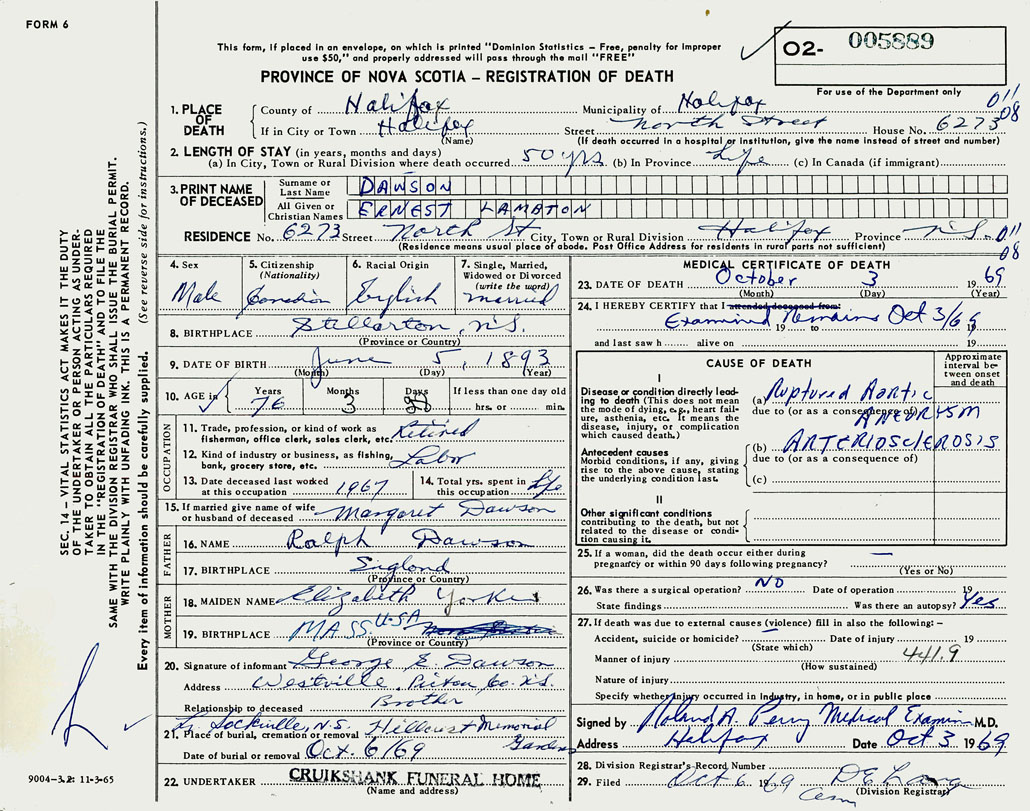 FORM 6
This form, if placed in an envelope, on which is printed "Dominion Statistics – Free, penalty for improper
use $50," and properly addressed will pass through the mail "FREE"
PROVINCE OF NOVA SCOTIA – REGISTRATION OF DEATH
O2- 005889
For use of the Department only
011
08
1. PLACE OF DEATH
County of Halifax Municipality of Halifax
If in City or Town Halifax Street North Street House No. 6273
(Name) (If death occurred in a hospital or institution, give the name instead of street and number)
2. LENGTH OF STAY (in years, months and days)
(a) In City, Town or Rural Division where death occurred 50 yrs (b) In Province Life (c) In Canada (if immigrant)
3. PRINT NAME OF DECEASED
Surname or Last Name DAWSON
All Given or Christian Names ERNEST LAMBTON
RESIDENCE No. 6273 Street North St City, Town or Rural Division Halifax Province N.S. 011
(Residence means usual place of abode. Post Office Address for residents in rural parts not sufficient) 08
4. Sex Male
5. Citizenship (Nationality) Canadian
6. Racial Origin English
7. Single, Married, Widowed or Divorced (write the word) married
8. BIRTHPLACE Stellarton, N.S.
(Province or Country)
9. DATE OF BIRTH June 5, 1893
(Month) (Day) (Year)
10. AGE in Years 76 Months 3 Days If less than one day old hrs. or min.
OCCUPATION
11. Trade, profession, or kind of work as fisherman, office clerk, sales clerk, etc. Retired
12. Kind of industry or business, as fishing, bank, grocery store, etc. Labor
13. Date deceased last worked at this occupation 1967
14. Total yrs. spent in this occupation Life
15. If married give name of wife or husband of deceased Margaret Dawson
FATHER
16. NAME Ralph Dawson
17. BIRTHPLACE England
(Province or Country)
MOTHER
18. MAIDEN NAME Elizabeth Yorke
19. BIRTHPLACE MASS. U-SA
(Province or Country)
20. Signature of informant George E. Dawson
Address Westville, Pictou Co. N.S.
Relationship to deceased Brother
21. Place of burial, cremation or removal Lr. Sackville, N.S. Hillcrest Memorial Gardens
Date of burial or removal Oct. 6/69
22. UNDERTAKER CRUIKSHANK FUNERAL HOME
(Name and address)
MEDICAL CERTIFICATE OF DEATH
23. DATE OF DEATH October 3 1969
(Month) (Day) (Year)
24. I HEREBY CERTIFY that I attended deceased from:
Examined Remains Oct 3/69
19 to 19
and last saw h alive on 19
CAUSE OF DEATH
Approximate interval between onset and death
I
Disease or condition directly leading to death (This does not mean the mode of dying, e.g., heart failure, asthenia, etc. It means the disease, injury, or complication which caused death.)
(a) Ruptured Aortic
due to (or as a consequence of) ANEURYSM
Antecedent causes
Morbid conditions, if any, giving rise to the above cause, stating the underlying condition last.
(b) ARTERIOSCLEROSIS
due to (or as a consequence of)
(c)
II
Other significant conditions
contributing to the death, but not related to the disease or condition causing it.
25. If a woman, did the death occur either during pregnancy or within 90 days following pregnancy? —
(Yes or No)
26. Was there a surgical operation? NO Date of operation 19
State findings Was there an autopsy? Yes
27. If death was due to external causes (violence) fill in also the following: –
Accident, suicide or homicide? Date of injury 19
(State which)
Manner of injury 441.9
(How sustained)
Nature of injury
Specify whether injury occurred in Industry, in home, or in public place
Signed by Roland A. Perry Medical Examiner M.D.
Address Halifax Date Oct 3 1969
28. Division Registrar's Record Number
29. Filed Oct 6 1969
(Division Registrar)
SEC. 14 – VITAL STATISTICS ACT MAKES IT THE DUTY
OF THE UNDERTAKER OR PERSON ACTING AS UNDER-
TAKER TO OBTAIN ALL THE PARTICULARS REQUIRED
IN THE "REGISTRATION OF DEATH" AND TO FILE THE
SAME WITH THE DIVISION REGISTRAR WHO SHALL ISSUE THE BURIAL PERMIT.
WRITE PLAINLY WITH UNFADING INK. THIS IS A PERMANENT RECORD.
Every item of information should be carefully supplied. (See reverse side for instructions.)
9004-3.2: 11-3-65